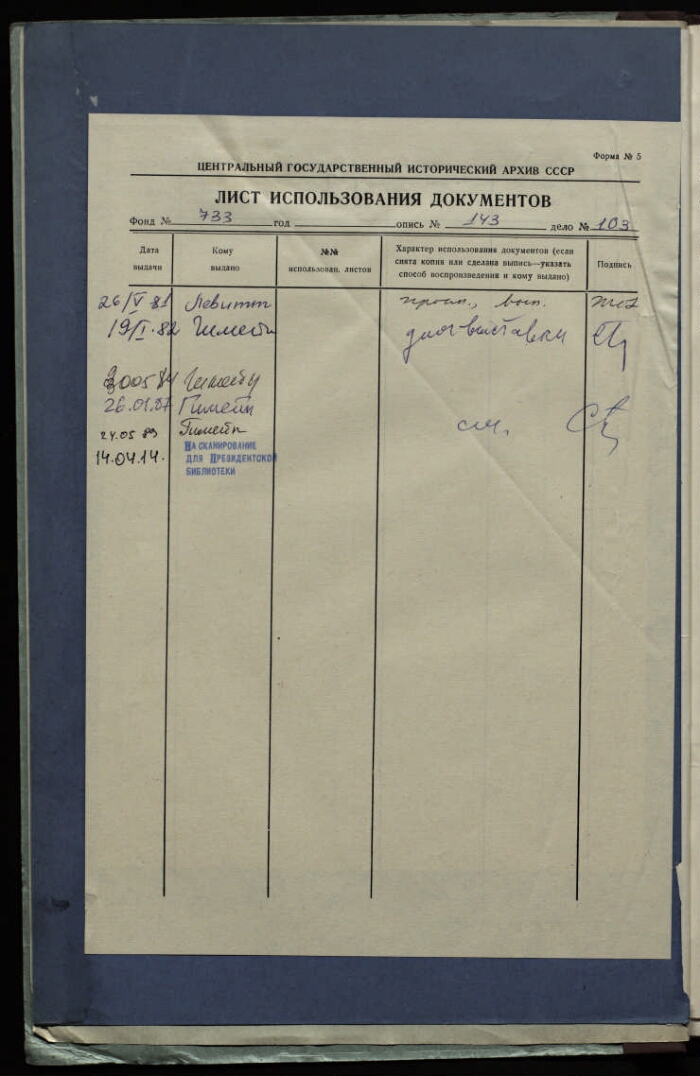 Форма № 5
ЦЕНТРАЛЬНЫЙ ГОСУДАРСТВЕННЫЙ ИСТОРИЧЕСКИЙ АРХИВ СССР
ЛИСТ ИСПОЛЬЗОВАНИЯ ДОКУМЕНТОВ
Фонд № 733 год опись № 143 дело № 103
Дата выдачи
Кому выдано
№№ использован. листов
Характер использования документов (если
снята копия или сделана выпись—указать
способ воспроизведения и кому выдано)
Подпись
26/V 81 Левитт просм., вып.
19/I.82 Гимейн для выставки
300584
26.01.87 Гимейн
24.05 89 Гимейн см.
14.04.14. НА СКАНИРОВАНИЕ
ДЛЯ ПРЕЗИДЕНТСКОЙ
БИБЛИОТЕКИ